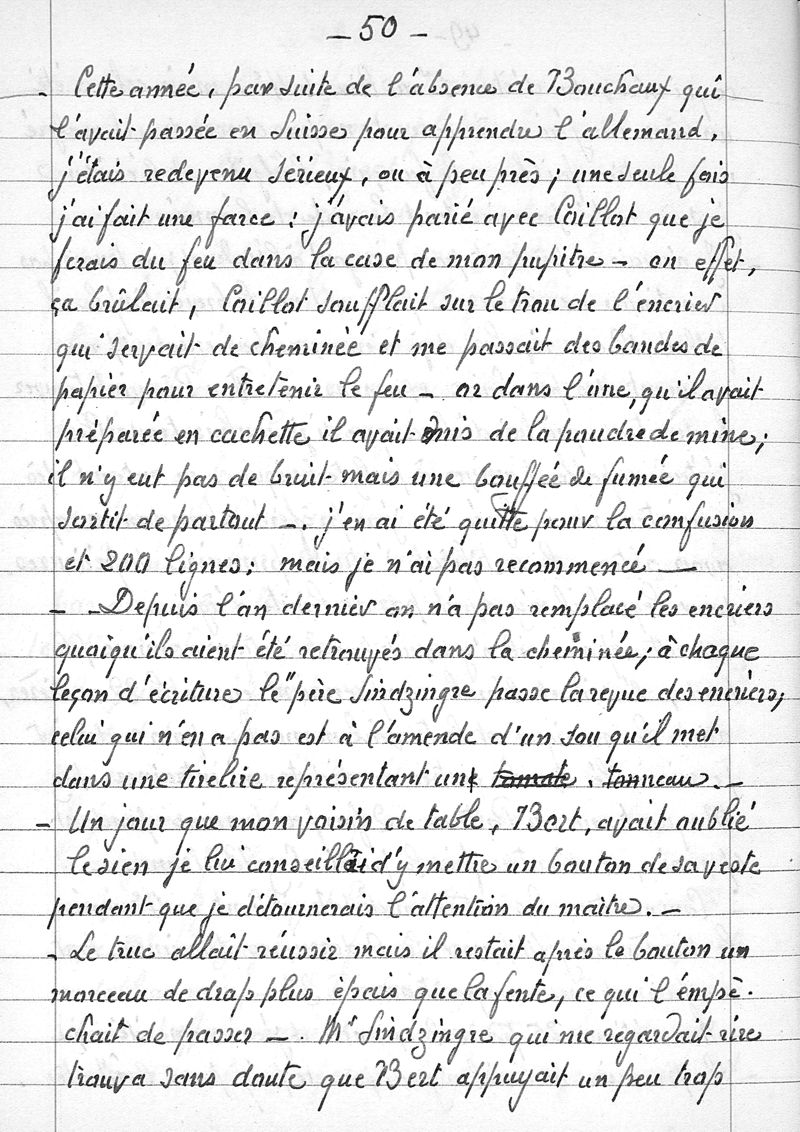 — 50 —
- Cette année, par suite de l'absence de Bouchaux qui
l'avait passée en Suisse pour apprendre l'allemand,
j'étais redevenu sérieux, ou à peu près ; une seule fois
j'ai fait une farce : j'avais parié avec Caillot que je
ferais du feu dans la case de mon pupitre — en effet,
ça brûlait, Caillot soufflait sur le trou de l'encrier
qui servait de cheminée et me passait des bandes de
papier pour entretenir le feu — or dans l'une, qu'il avait
préparée en cachette il avait mis de la poudre de mine ;
il n'y eut pas de bruit mais une bouffée de fumée qui
sortit de partout —. j'en ai été quitte pour la confusion
et 200 lignes ; mais je n'ai pas recommencé —
- - Depuis l'an dernier on n'a pas remplacé les encriers
quoiqu'ils aient été retrouvés dans la cheminée ; à chaque
leçon d'écriture le "père Sindzingre passe la revue des encriers,
celui qui n'en a pas est à l'amende d'un sou qu'il met
dans une tirelire représentant un tomate, tonneau. —
- Un jour que mon voisin de table, Bert, avait oublié
le sien je lui conseillai d'y mettre un bouton de sa veste
pendant que je détournerais l'attention du maître. —
- Le truc allait réussir mais il restait après le bouton un
morceau de drap plus épais que la fente, ce qui l'empê-
chait de passer —. Mr Sindzingre qui me regardait rire
trouva sans doute que Bert appuyait un peu trop